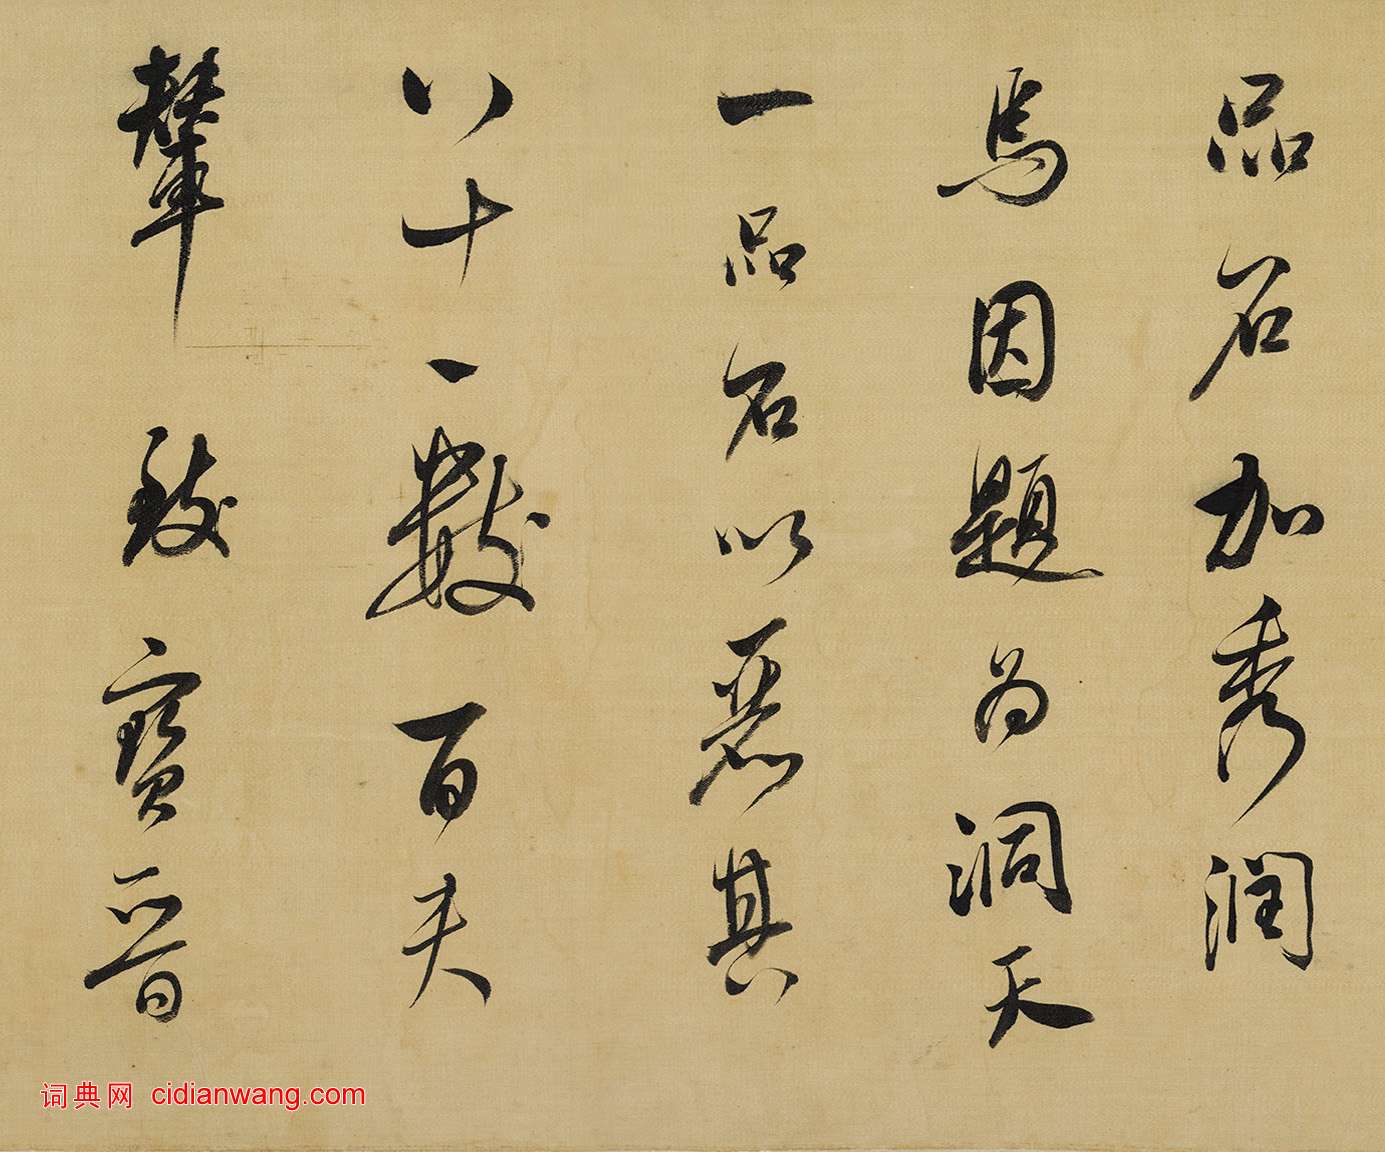 品石加秀潤
焉因題為洞天
一品石以惡其
八十一數百夫
輦致寶晉
词典网 cidianwang.com